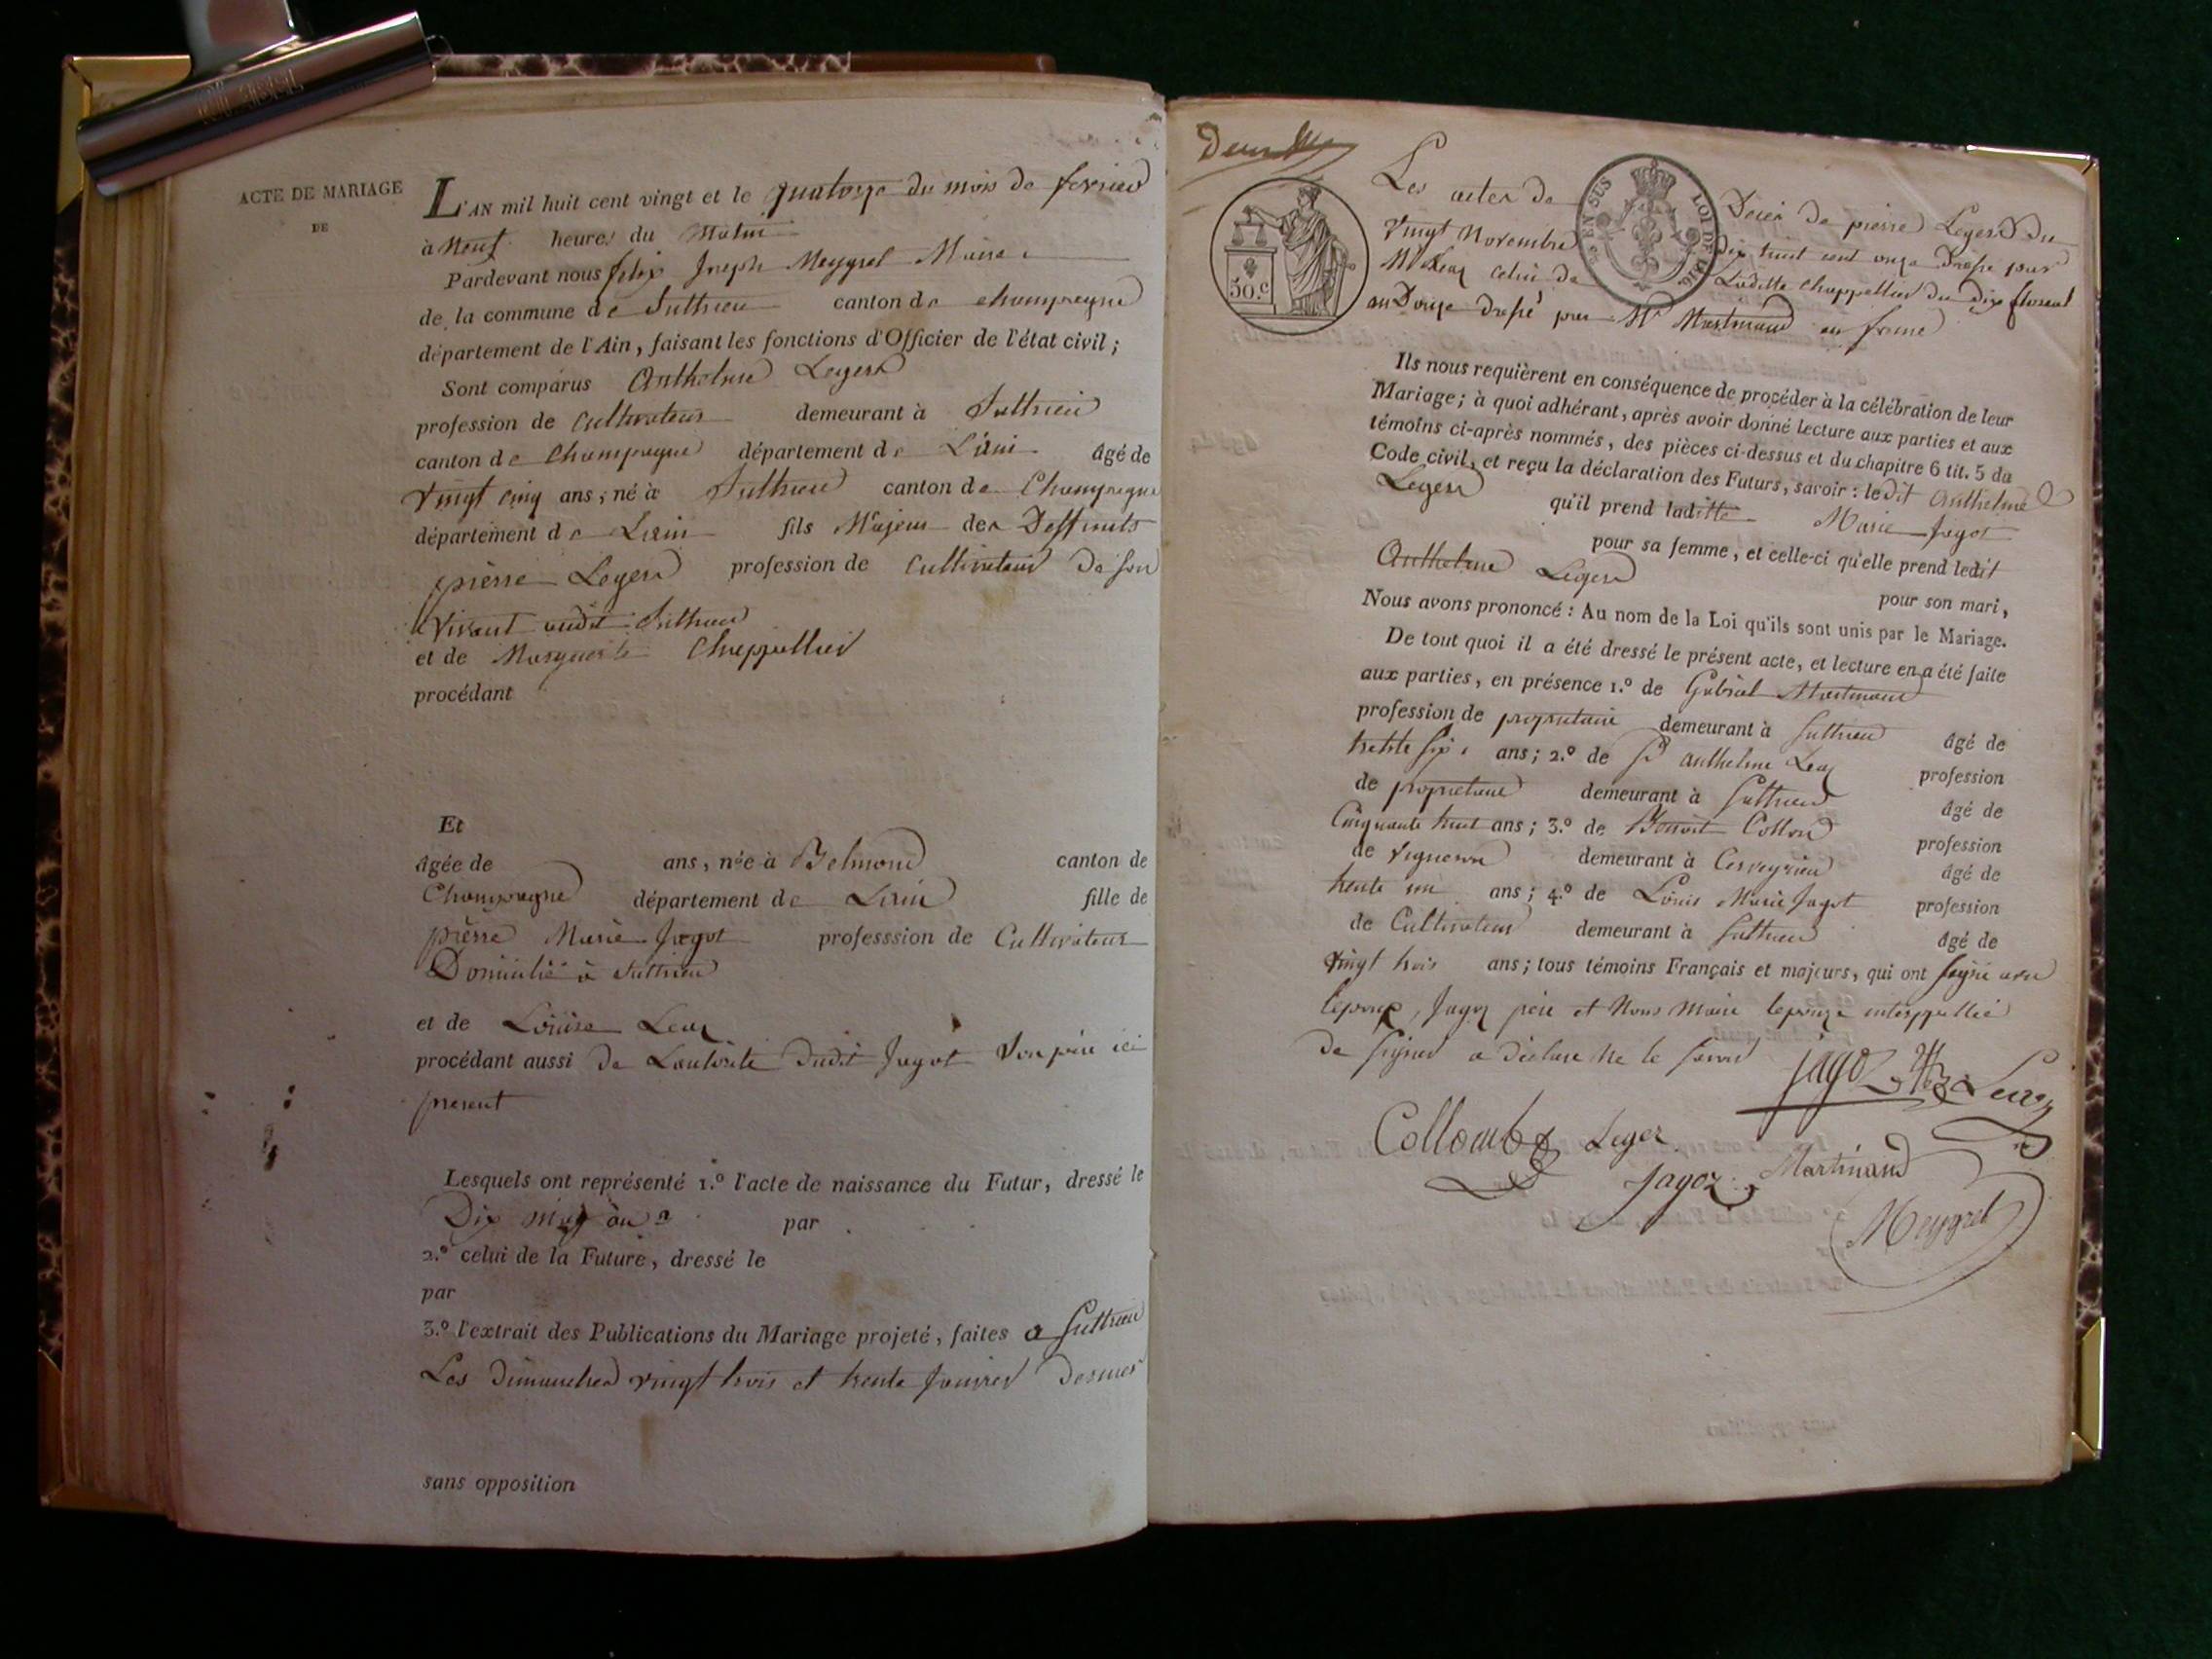 ACTE DE MARIAGE
DE
L'AN mil huit cent vingt et le quatorze du mois de fevrier
à Neuf heures du Matin
Pardevant nous felix Joseph Meygret Maire
de la commune de Suthrieu canton de champagne
département de l'Ain, faisant les fonctions d'Officier de l'état civil;
Sont comparus Anthelme Leger
profession de Cultivateur demeurant à Suthrieu
canton de Champagne département de L'ain âgé de
vingt cinq ans; né à Suthrieu canton de Champagne
département de Lain fils Majeur des Deffunts
pierre Leger profession de Cultivateur de son
vivant audit Suthrieu
et de Marguerite Chappellier
procédant
Et
âgée de ans, née à Belmond canton de
Champagne département de Lain fille de
pierre Marie Jagot professsion de Cultivateur
Domicilié à Suthrieu
et de Louise Leaz
procédant aussi de Lautorité dudit Jagot Son père ici
présent
Lesquels ont représenté 1.º l'acte de naissance du Futur, dressé le
Dix par
2.º celui de la Future, dressé le
par
3.º l'extrait des Publications du Mariage projeté, faites a Suthrieu
Les Dimanches vingt trois et trente Janvier Dernier
sans opposition
50.c
EN SUS LOI DE 1816
Les actes de Décès de pierre Leger du
vingt Novembre Dix huit cent onze Dressé par
Mr Leaz celui de Laditte Chappellier du Dix floreal
an Douze dressé par Mr Martinand en forme
Ils nous requièrent en conséquence de procéder à la célébration de leur
Mariage; à quoi adhérant, après avoir donné lecture aux parties et aux
témoins ci-après nommés, des pièces ci-dessus et du chapitre 6 tit. 5 du
Code civil, et reçu la déclaration des Futurs, savoir: ledit Anthelme
Leger qu'il prend laditte Marie Jagot
pour sa femme, et celle-ci qu'elle prend ledit
Anthelme Leger pour son mari,
Nous avons prononcé: Au nom de la Loi qu'ils sont unis par le Mariage.
De tout quoi il a été dressé le présent acte, et lecture en a été faite
aux parties, en présence 1.º de Gabriel Martinand
profession de propriétaire demeurant à Suthrieu âgé de
trente six ans; 2.º de Sr Anthelme Leaz profession
de propriétaire demeurant à Suthrieu âgé de
Cinquante huit ans; 3.º de Benoit Collon profession
de vigneron demeurant à Cerveyrieu âgé de
trente un ans; 4.º de Louis Marie Jagot profession
de Cultivateur demeurant à Suthrieu âgé de
vingt trois ans; tous témoins Français et majeurs, qui ont signé avec
lepoux, Jagoz père et Nous Maire lepouze interppellée
de signer a déclaré ne le savoir
jagoz Leaz
Collomb Leger
jagoz Martinand
Meygret